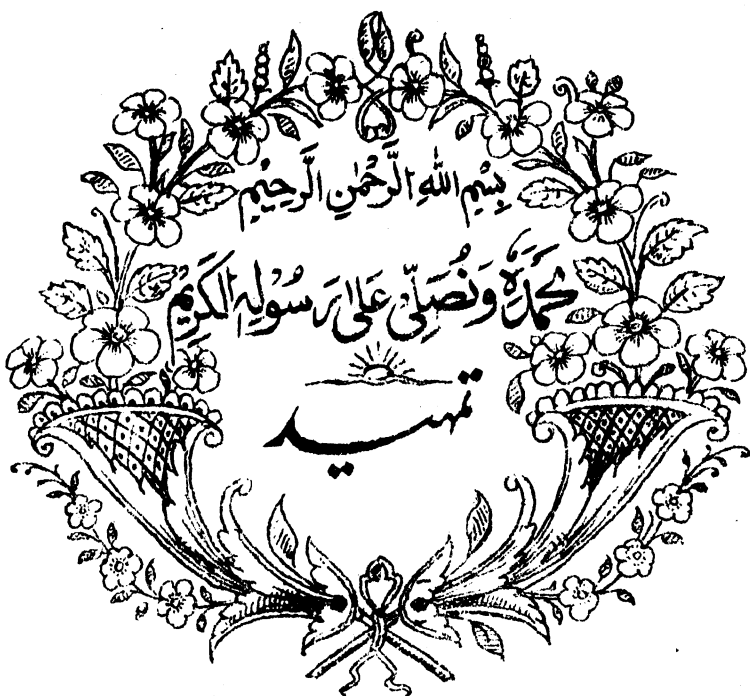 بِسْمِ اللهِ الرَّحْمٰنِ الرَّحِيْمِ
نحمدہٗ وَنُصَلِّیْ عَلٰی رَسُوْلِہِ الکَرِیْمِ
تمہید